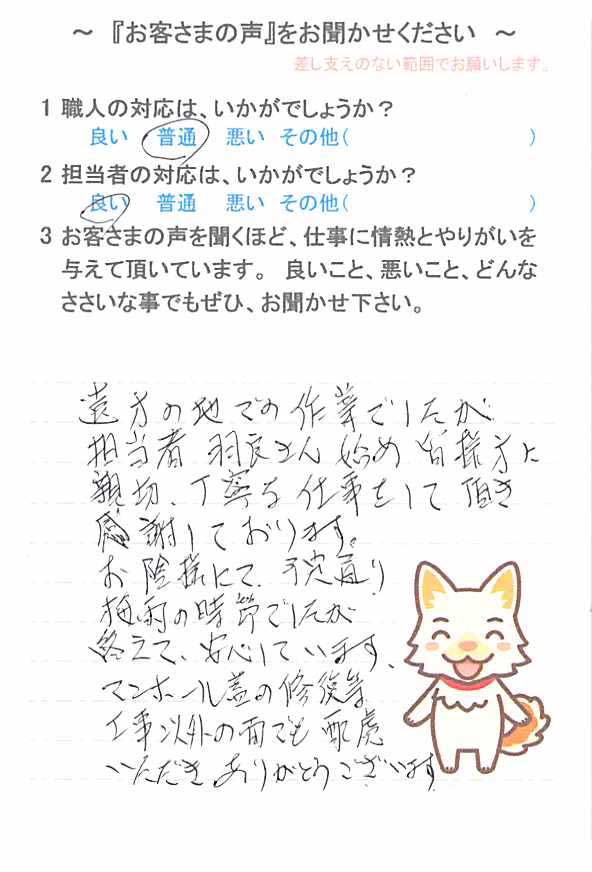 ～ 『お客さまの声』をお聞かせください ～
差し支えのない範囲でお願いします。
1 職人の対応は、いかがでしょうか？
良い 普通 悪い その他( )
2 担当者の対応は、いかがでしょうか？
良い 普通 悪い その他( )
3 お客さまの声を聞くほど、仕事に情熱とやりがいを
与えて頂いています。 良いこと、悪いこと、どんな
ささいな事でもぜひ、お聞かせ下さい。
遠方の地での作業でしたが
担当者 羽良さん始め皆様方に
親切、丁寧な仕事をして頂き
感謝しております。
お陰様にて、予定通り
梅雨の時節でしたが
終えて、安心しています、
マンホール蓋の修復等
工事以外の面でも配慮
いただき ありがとうございます